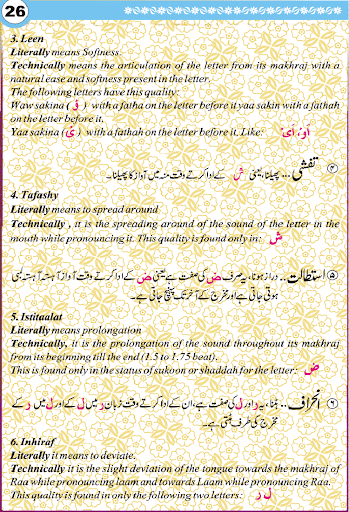 26
3. Leen
Literally means Softness
Technically means the articulation of the letter from its makhraj with a
natural ease and softness present in the letter.
The following letters have this quality:
Waw sakina (وْ) with a fatha on the letter before it yaa sakin with a fathah
on the letter before it.
Yaa sakina (یْ) with a fathah on the letter before it, Like: اَوْ، اَیْ
۴ تفشی ... پھیلنا، یعنی ش کے ادا کرتے وقت منہ میں آواز کا پھیلنا۔
4. Tafashy
Literally means to spread around
Technically , it is the spreading around of the sound of the letter in the
mouth while pronouncing it. This quality is found only in: ش
۵ استطالت .. دراز ہونا، یہ صرف ض کی صفت ہے یعنی ض کے ادا کرتے وقت آواز آہستہ آہستہ لمبی
ہوتی جاتی ہے اور مخرج کے آخر تک پہنچ جاتی ہے۔
5. Istitaalat
Literally means prolongation
Technically, it is the prolongation of the sound throughout its makhraj
from its beginning till the end (1.5 to 1.75 beat).
This is found only in the status of sukoon or shaddah for the letter: ض
۶ انحراف .. ہٹنا، یہ ر اور ل کی صفت ہے، ان کے ادا کرتے وقت زبان ر میں ل کے اور ل میں ر کے
مخرج کی طرف ہٹتی ہے۔
6. Inhiraf
Literally it means to deviate.
Technically it is the slight deviation of the tongue towards the makhraj of
Raa while pronouncing laam and towards Laam while pronouncing Raa.
This quality is found in only the following two letters: ل ر